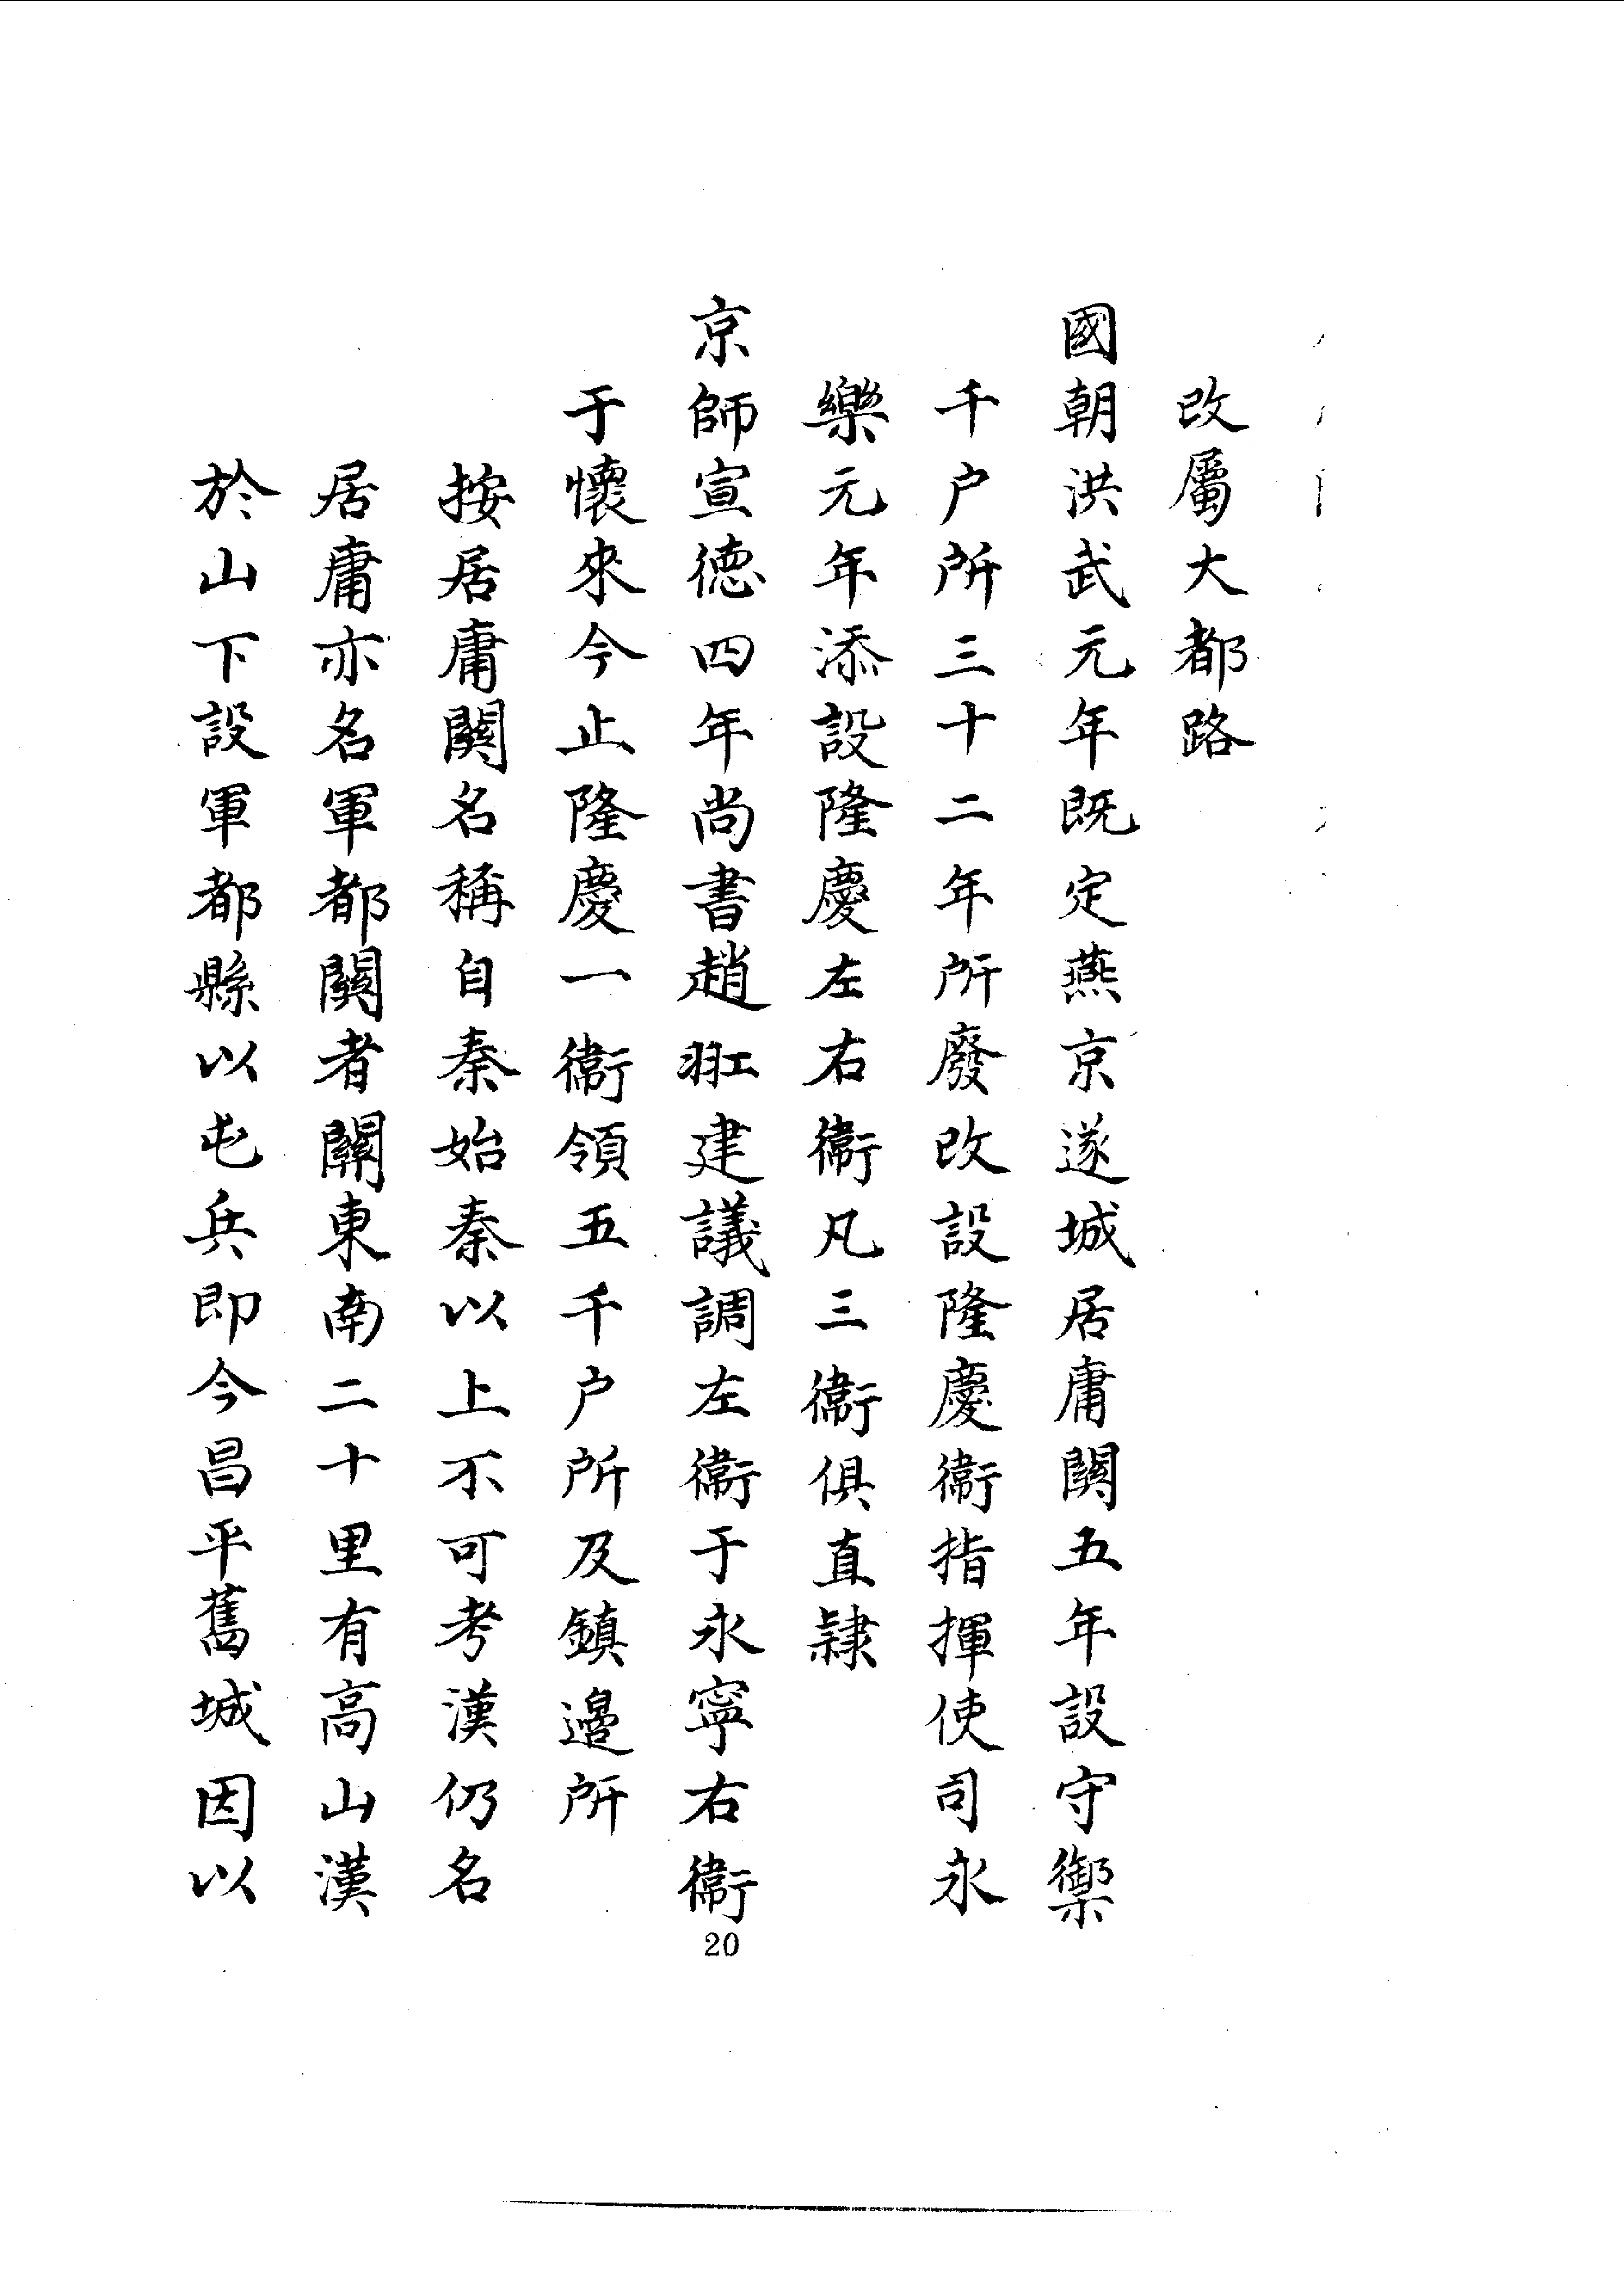 改屬大都路
國朝洪武元年既定燕京遂城居庸關五年設守禦
千户所三十二年所廢改設隆慶衞指揮使司永
樂元年添設隆慶左右衞凡三衞俱直隸
京師宣德四年尚書趙羾建議調左衞于永寧右衞
于懷來今止隆慶一衞領五千户所及鎮邊所
按居庸關名稱自秦始秦以上不可考漢仍名
居庸亦名軍都關者關東南二十里有高山漢
於山下設軍都縣以屯兵即今昌平舊城因以
20